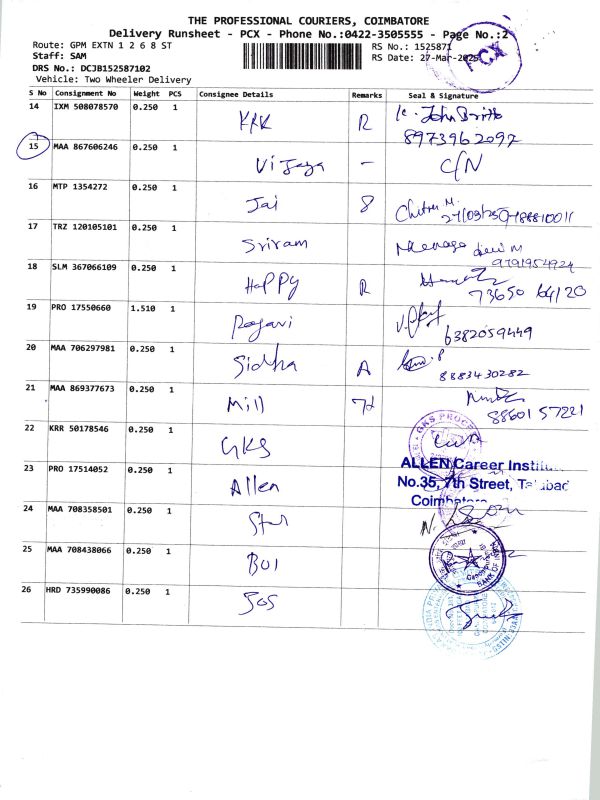 THE PROFESSIONAL COURIERS, COIMBATORE
Delivery Runsheet - PCX - Phone No.:0422-3505555 - Page No.:2
Route: GPM EXTN 1 2 6 8 ST
RS No.: 1525871
Staff: SAM
RS Date: 27-Mar-2025
PCX
DRS No.: DCJB152587102
Vehicle: Two Wheeler Delivery
S No Consignment No Weight PCS Consignee Details Remarks Seal & Signature
14 IXM 508078570 0.250 1 KKK R K. John Britto
8973962097
15 MAA 867606246 0.250 1 Vijaya - C/N
16 MTP 1354272 0.250 1 Jai 8 Chitra M.
17 TRZ 120105101 0.250 1 Sriram
9791954924
18 SLM 367066109 0.250 1 Happy R
73650 64120
19 PRO 17550660 1.510 1 Ragavi
6382059449
20 MAA 706297981 0.250 1 Sidha A
8883430282
21 MAA 869377673 0.250 1 Mill 7d
88601 57221
22 KRR 50178546 0.250 1 GKS
23 PRO 17514052 0.250 1 Allen ALLEN Career Institu
No.35, 7th Street, Tatabad
Coimbatore
24 MAA 708358501 0.250 1 Star
25 MAA 708438066 0.250 1 BOI
BANK OF INDIA
26 HRD 735990086 0.250 1 SOS